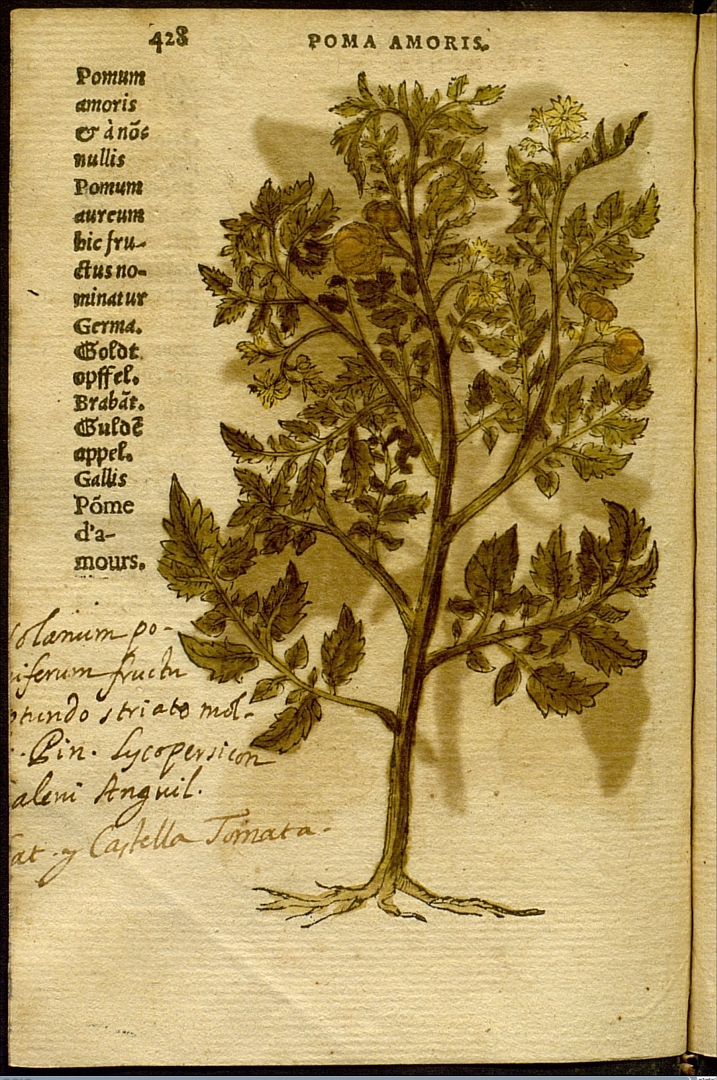 428
POMA AMORIS.
Pomum
amoris
& à nōc
nullis
Pomum
aureum
hic fru-
ctus no-
minatur
Germa.
Goldt
opffel.
Brabāt.
Guldē
appel.
Gallis
Pōme
d'a-
mours.
olanum po-
iferum fructu
otundo striato mol-
Pin. Lycopersicon
aleni Anguil.
at. y Castella Tomata.